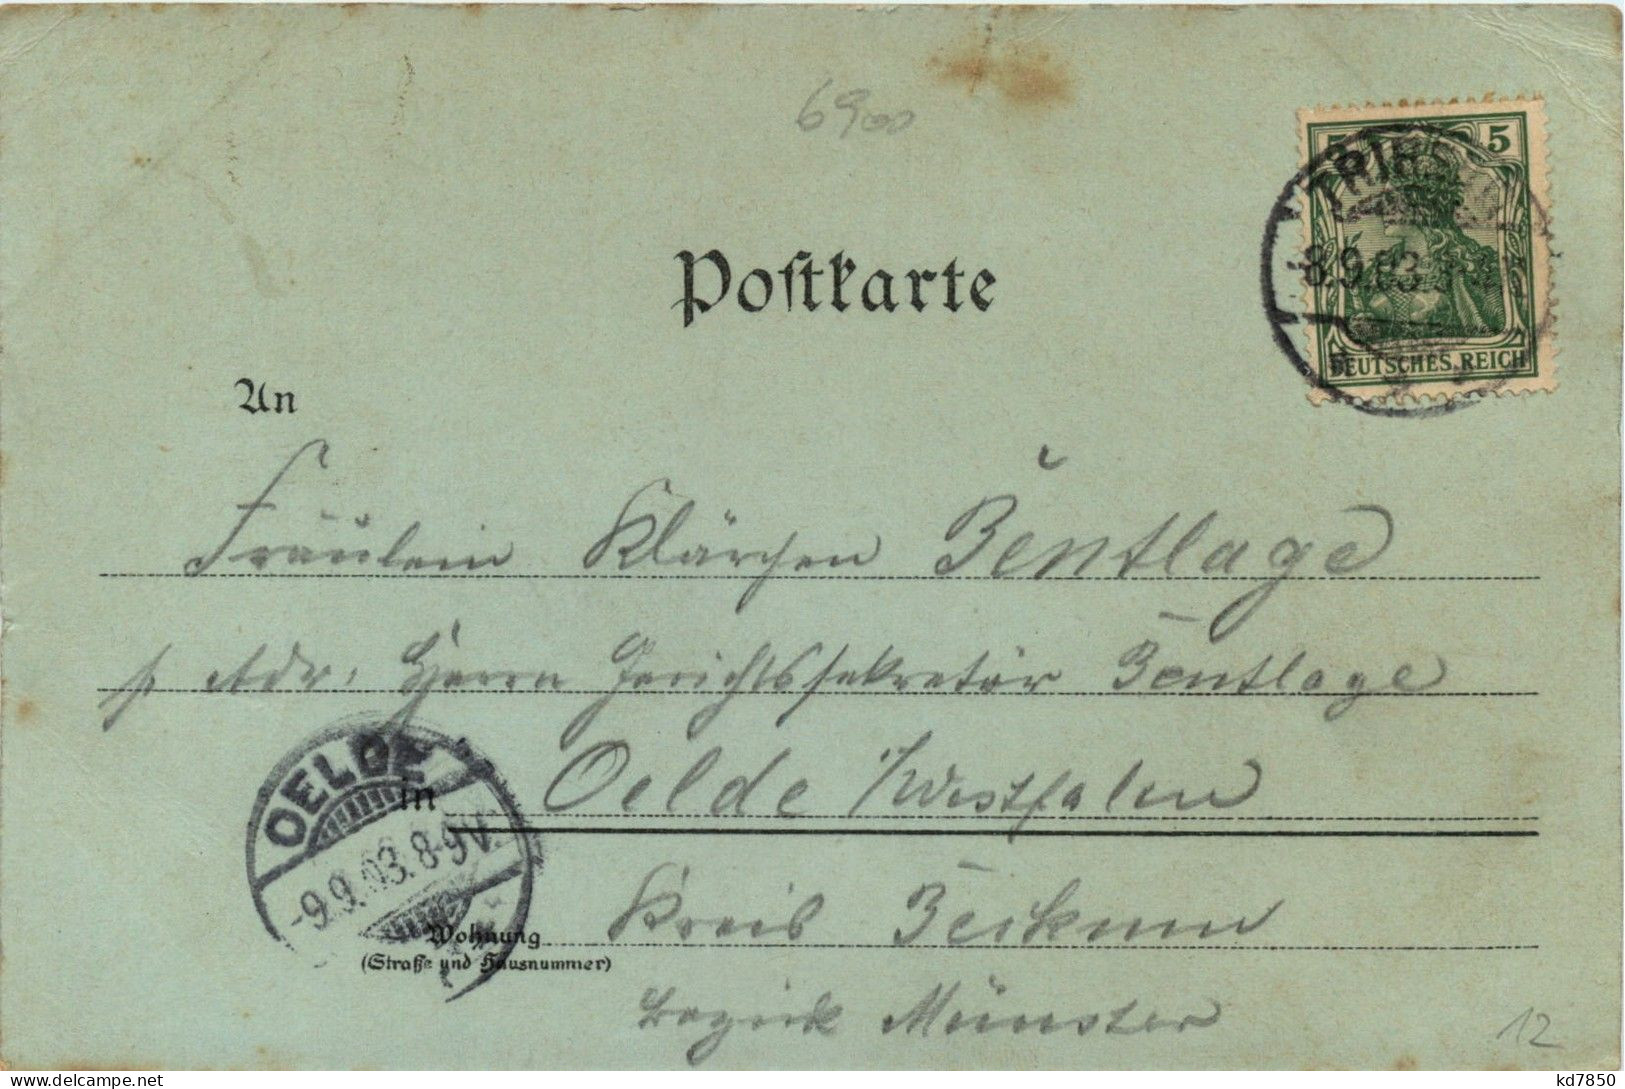 6900
5 5
TRIBERG
8.9.03.3-4
DEUTSCHES REICH
Postkarte
An
Fräulein Klärchen Bentlage
p. Adr. Herrn Gerichtssekretär Bentlage
in Oelde i/Westfalen
OELDE
-9.9.03.8-9V.
Kreis Beckum
Wohnung
(Straße und Hausnummer)
Bezirk Münster
12
kd7850